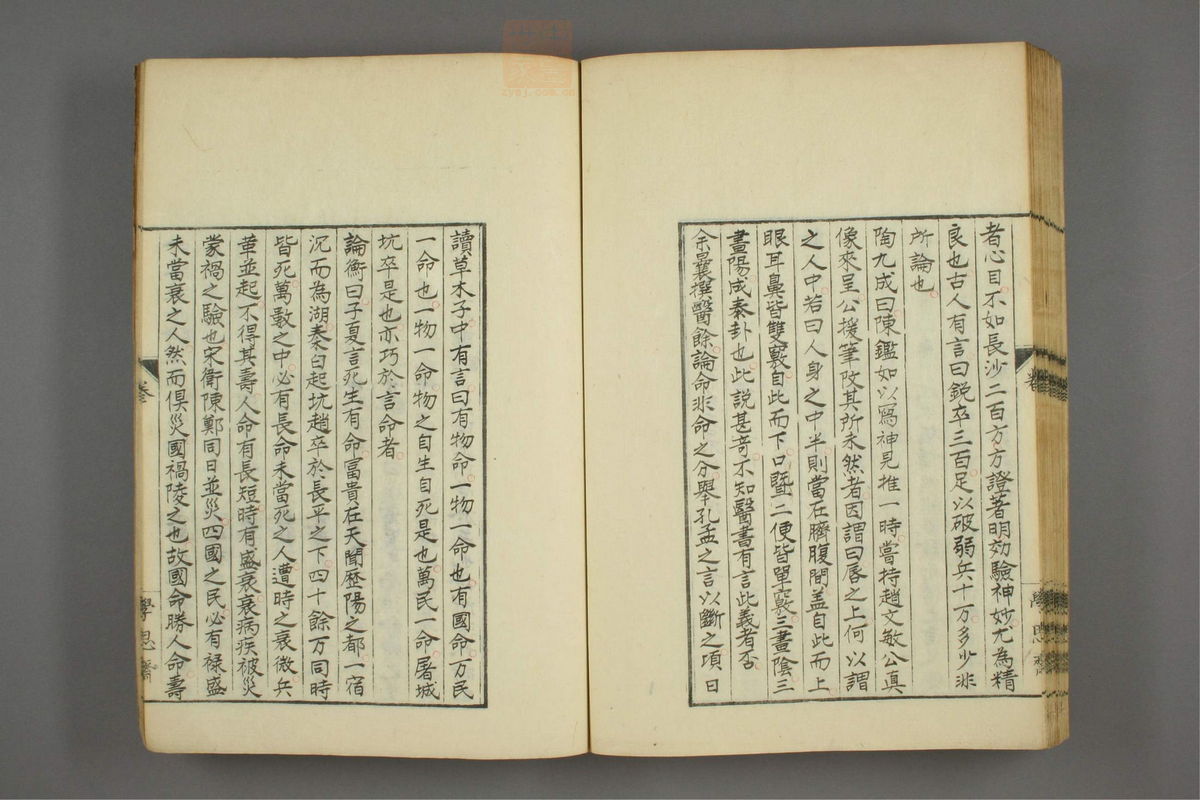 者心目不如長沙二百方方證著明効驗神妙尤為精
良也古人有言曰鋭卒三百足以破弱兵十万多少非
所論也
陶九成曰陳鑑如以爲神見推一時嘗持趙文敏公真
像來呈公援筆改其所未然者因謂曰唇之上何以謂
之人中若曰人身之中半則當在臍腹間盖自此而上
眼耳鼻皆雙竅自此而下口暨二便皆單竅三畫陰三
畫陽成泰卦也此説甚竒不知醫書有言此義者否
余曩撰醫餘論命非命之分舉孔孟之言以斷之項日
讀草木子中有言曰有物命一物一命也有國命万民
一命也一物一命物之自生自死是也萬民一命屠城
坑卒是也亦巧於言命者
論衡曰子夏言死生有命富貴在天聞歷陽之都一宿
沉而為湖秦白起坑趙卒於長平之下四十餘万同時
皆死萬數之中必有長命未當死之人遭時之衰微兵
革並起不得其壽人命有長短時有盛衰衰病疾被災
蒙禍之驗也宋衛陳鄭同日並災四國之民必有禄盛
未當衰之人然而俱災國禍陵之也故國命勝人命壽
卷
學思齋
卷
學思齋
zysj.com.cn